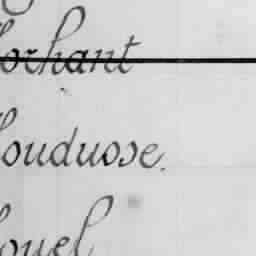 orhant
ouduose.
ouel